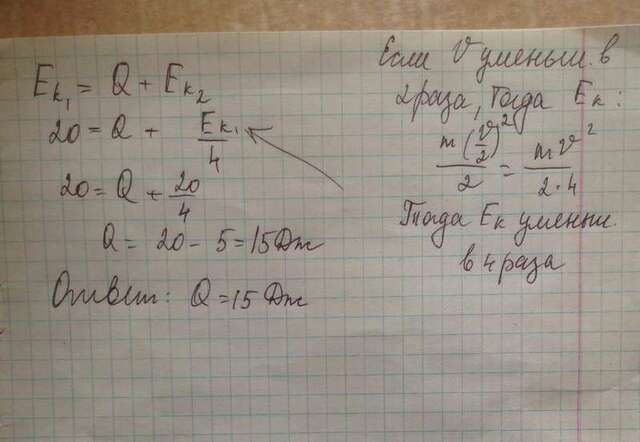 E_{k_1} = Q + E_{k_2}
20 = Q + \frac{E_{k_1}}{4}
20 = Q + \frac{20}{4}
Q = 20 - 5 = 15 Дж
Ответ: Q = 15 Дж
Если V уменьш. в
2 раза, тогда E_k:
\frac{m(\frac{v}{2})^2}{2} = \frac{mv^2}{2 \cdot 4}
Тогда E_k уменьш.
в 4 раза